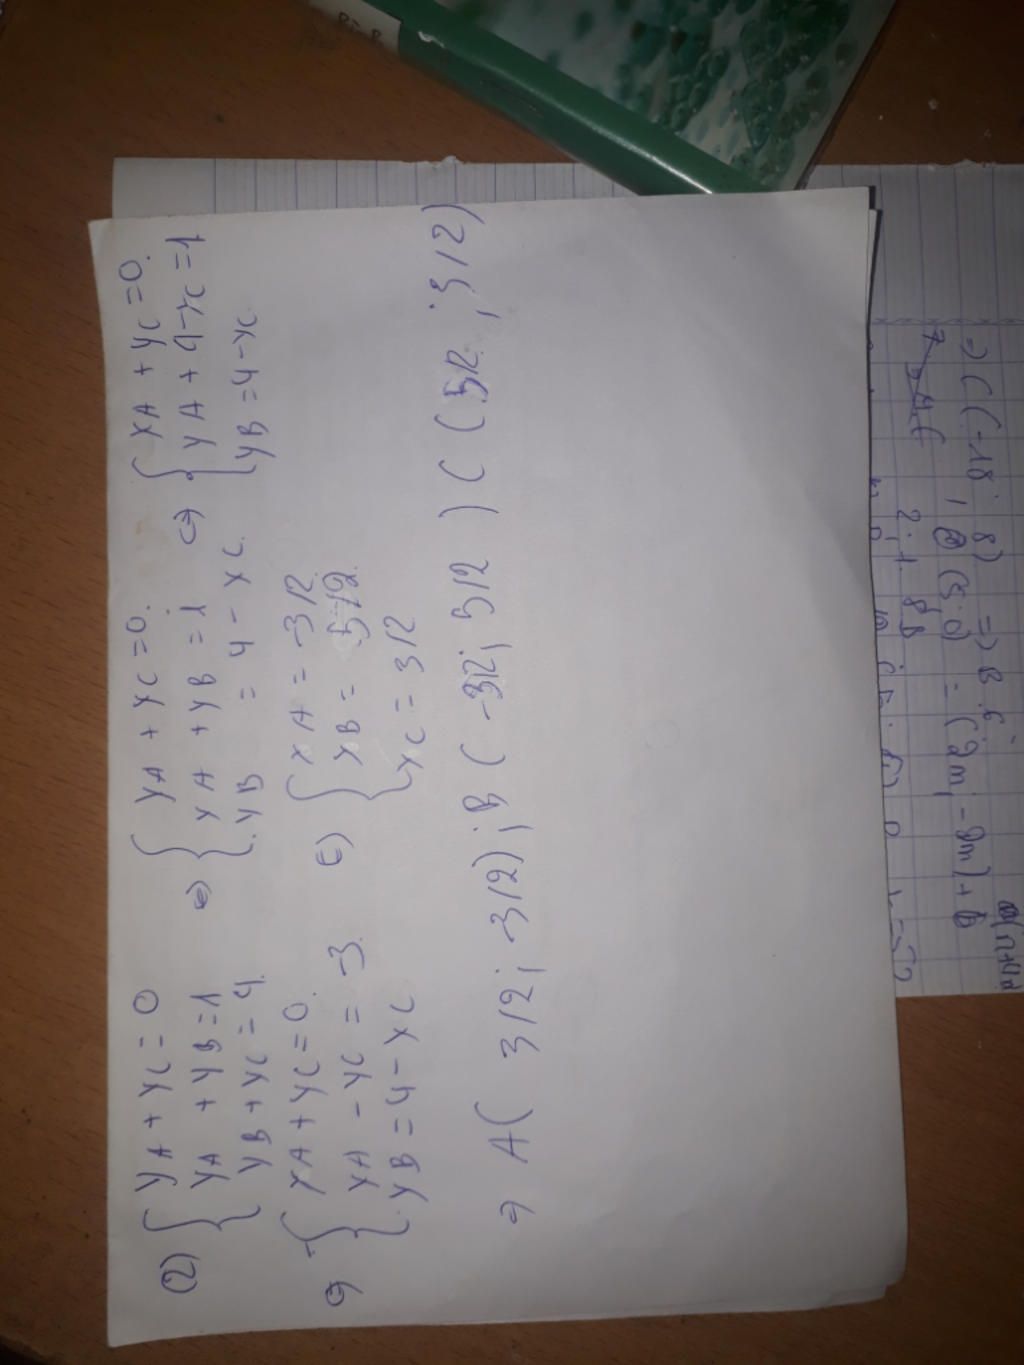 (2) { yA + yC = 0
yA + yB = 1
yB + yC = 4.
⇔ { yA + yC = 0.
yA + yB = 1
yB = 4 - xC.
⇔ { xA + yC = 0.
yA + 4 - xC = 1
yB = 4 - xC
⇔ { xA + yC = 0.
xA - yC = -3.
yB = 4 - xC
⇔ { xA = -3/2.
yB = 5/2.
yC = 3/2
⇒ A( 3/2; -3/2); B ( -3/2; 5/2 ) C ( 5/2 ; 3/2)
⇒ C ( -18 ; 8) ⇒ B ∈
(5; 0) = (2m; -8m) + B